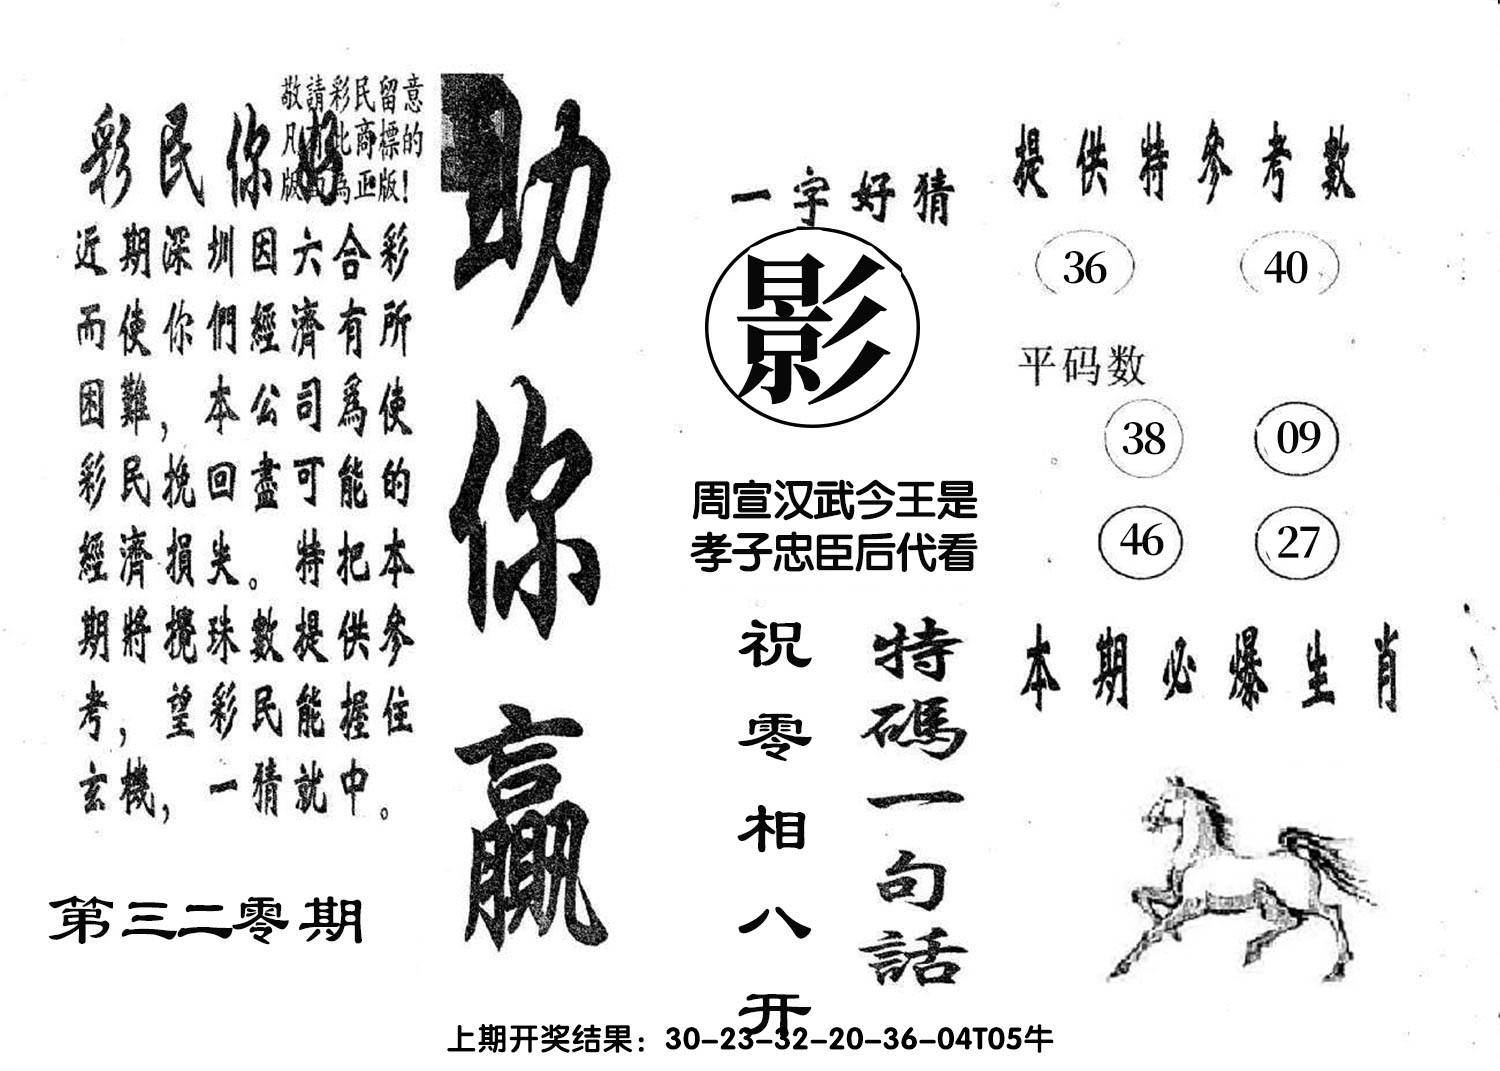 敬請彩民留意
凡有此商標的
版面為正版！
彩民你好
近期深圳因六合彩
而使你們經濟有所
困難，本公司爲使
彩民挽回盡可能的
經濟損失。特把本
期將攪珠數提供參
考，望彩民能握住
玄機，一猜就中。
第三二零期
助你贏
一字好猜
影
周宣汉武今王是
孝子忠臣后代看
特碼一句話
祝零相八开
提供特參考數
36 40
平码数
38 09
46 27
本期必爆生肖
上期开奖结果：30-23-32-20-36-04T05牛